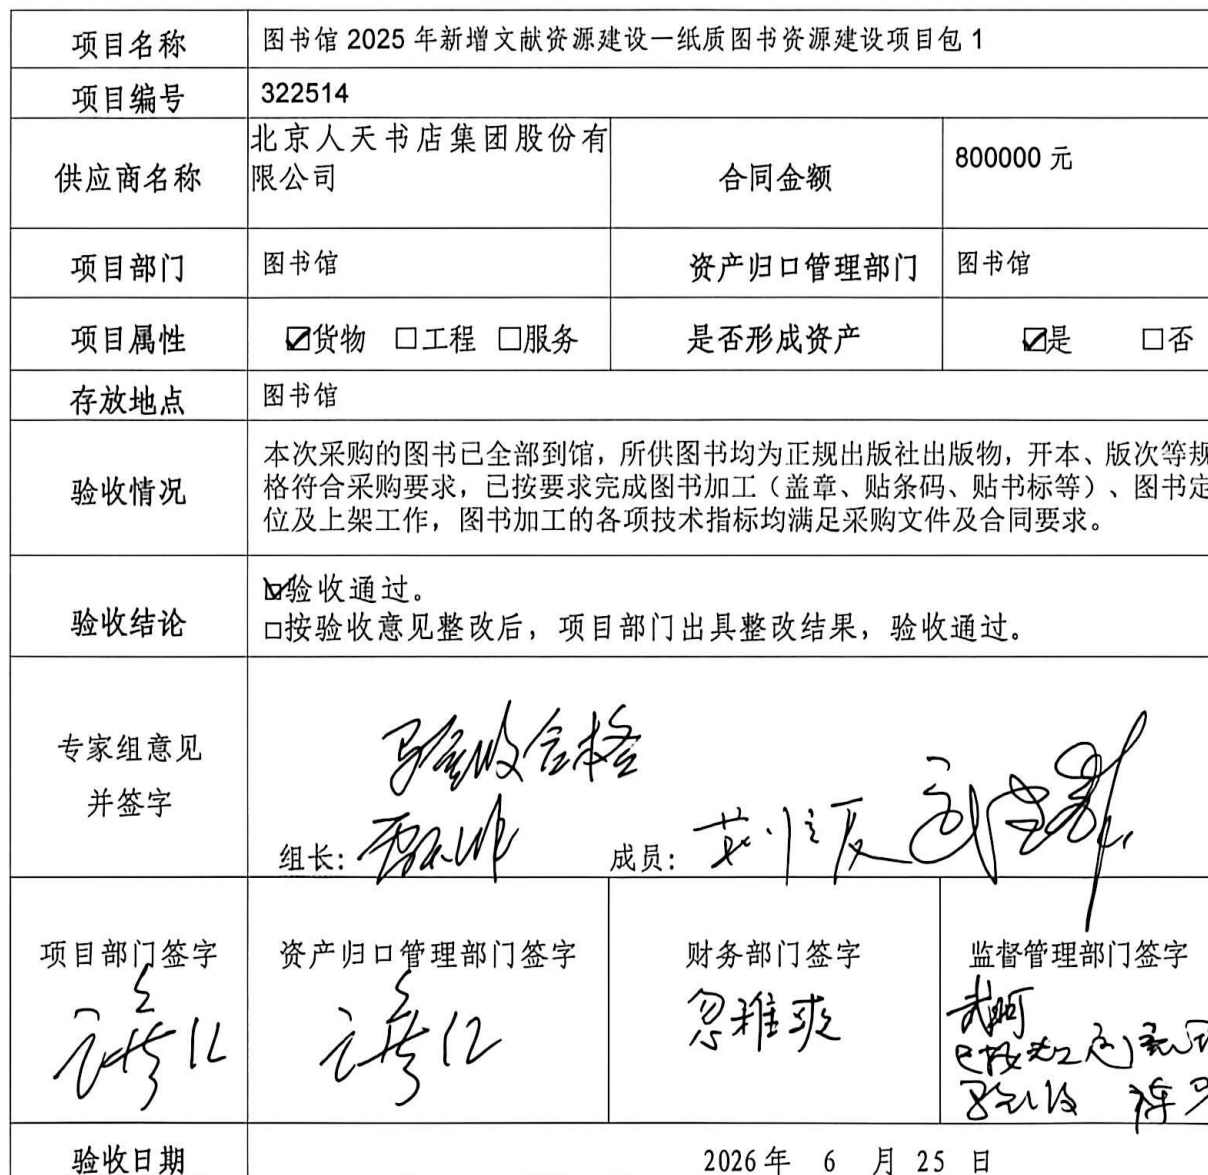 项目名称 图书馆 2025 年新增文献资源建设—纸质图书资源建设项目包 1
项目编号 322514
供应商名称 北京人天书店集团股份有
限公司 合同金额 800000 元
项目部门 图书馆 资产归口管理部门 图书馆
项目属性 ☑货物 □工程 □服务 是否形成资产 ☑是 □否
存放地点 图书馆
验收情况
本次采购的图书已全部到馆，所供图书均为正规出版社出版物，开本、版次等规
格符合采购要求，已按要求完成图书加工（盖章、贴条码、贴书标等）、图书定
位及上架工作，图书加工的各项技术指标均满足采购文件及合同要求。
验收结论
☑验收通过。
□按验收意见整改后，项目部门出具整改结果，验收通过。
专家组意见
并签字
验收合格
组长： 成员：
项目部门签字 资产归口管理部门签字 财务部门签字 监督管理部门签字
忽雅爽
验收日期 2026 年 6 月 25 日